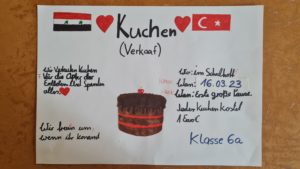 Kuchen
(Verkauf)
Wir Verkaufen Kuchen
für die Opfer der
Erdbeben Und Spenden
alles
Wir freun um
wenn ihr komend
Wo: im Schulhoff
Wan: 16.03.23
Wan: Erste große Pause
Jeder Kuchen Kostet
1 Euro
Klasse 6a